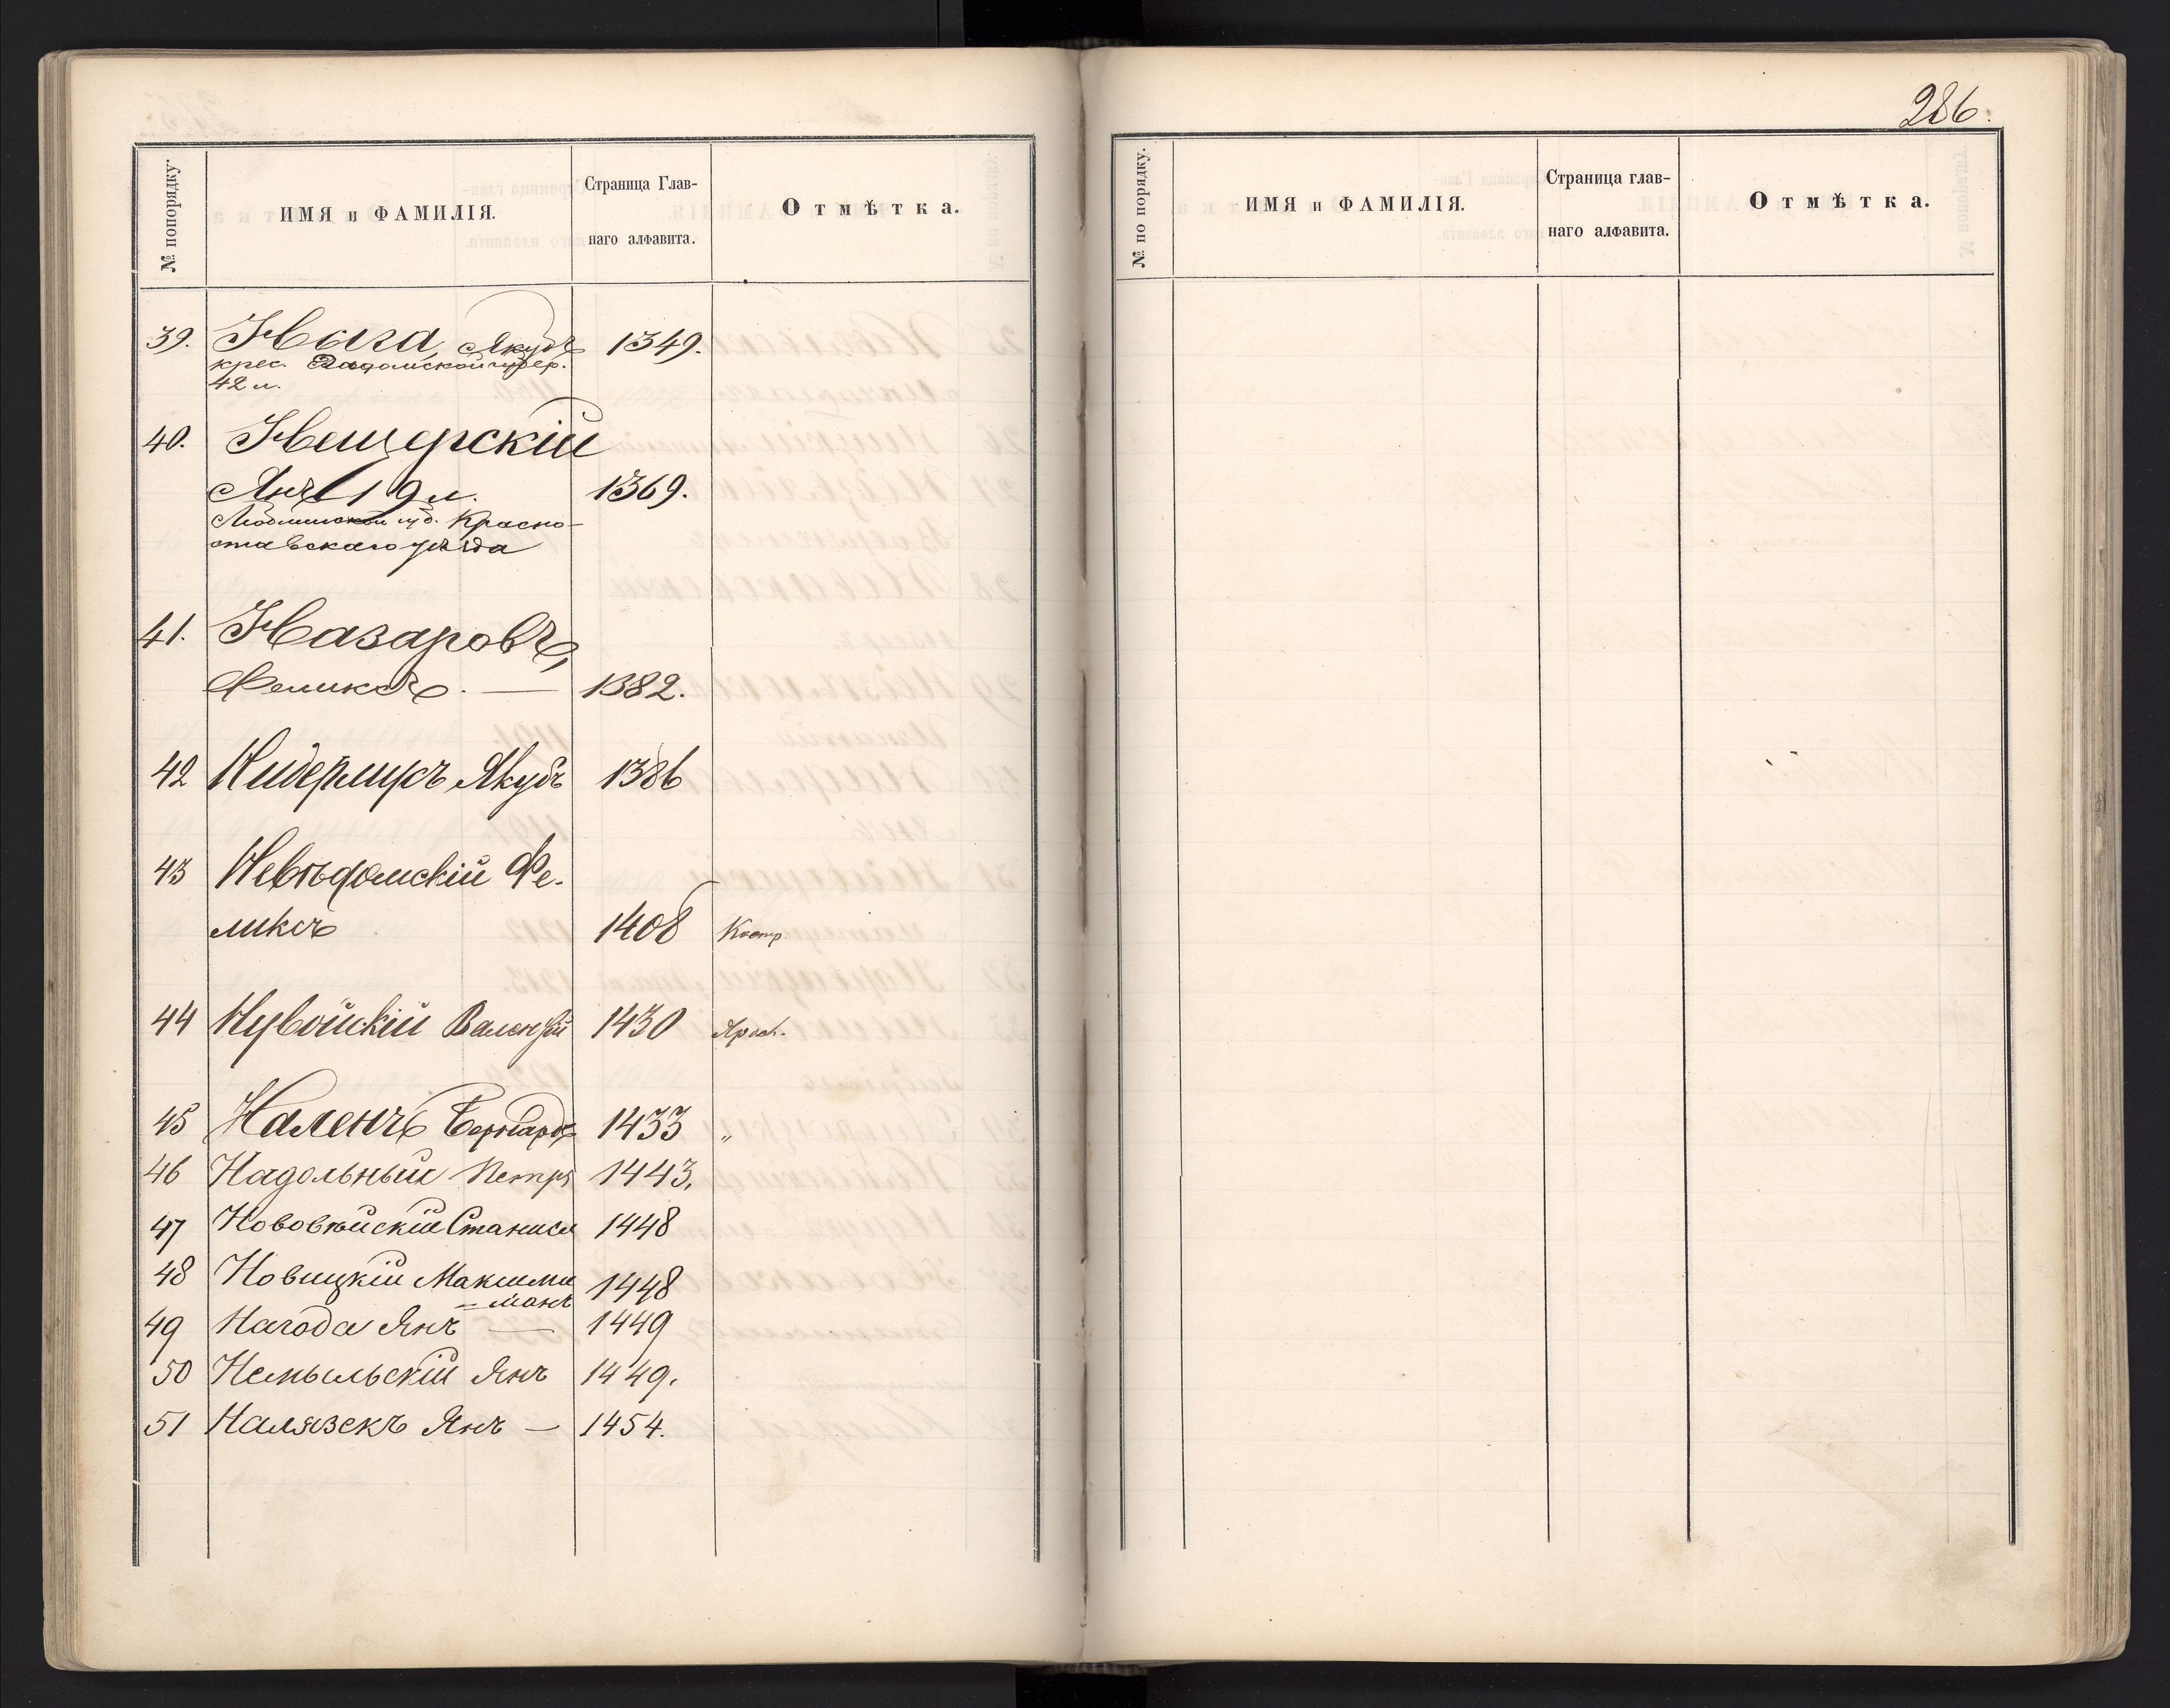 № попорядку.
ИМЯ и ФАМИЛІЯ.
Страница Глав-
наго алфавита.
Отмѣтка.
39. Нога, Якубъ 1349.
крес. Радомской губер.
42 л.
40. Нещерскій
Янъ 19 л. 1369.
Люблинской губ. Красно-
ставскаго уѣзда
41. Назаровъ,
Феликсъ. — 1382.
42 Нидерлихъ Якубъ 1386
43 Невѣдомскій Фе-
ликсъ 1408 Костр
44 Нувойскій Валентій 1430 Яросл.
45 Наленчъ Бернардъ 1433 „
46 Надольный Петръ 1443.
47 Нововѣйскій Станисл 1448
48 Новицкій Максими
=ліанъ 1448
49 Нагода Янъ — 1449
50 Немыльскій Янъ 1449.
51 Налязекъ Янъ — 1454.
286.
№ по порядку.
ИМЯ и ФАМИЛІЯ.
Страница глав-
наго алфавита.
Отмѣтка.